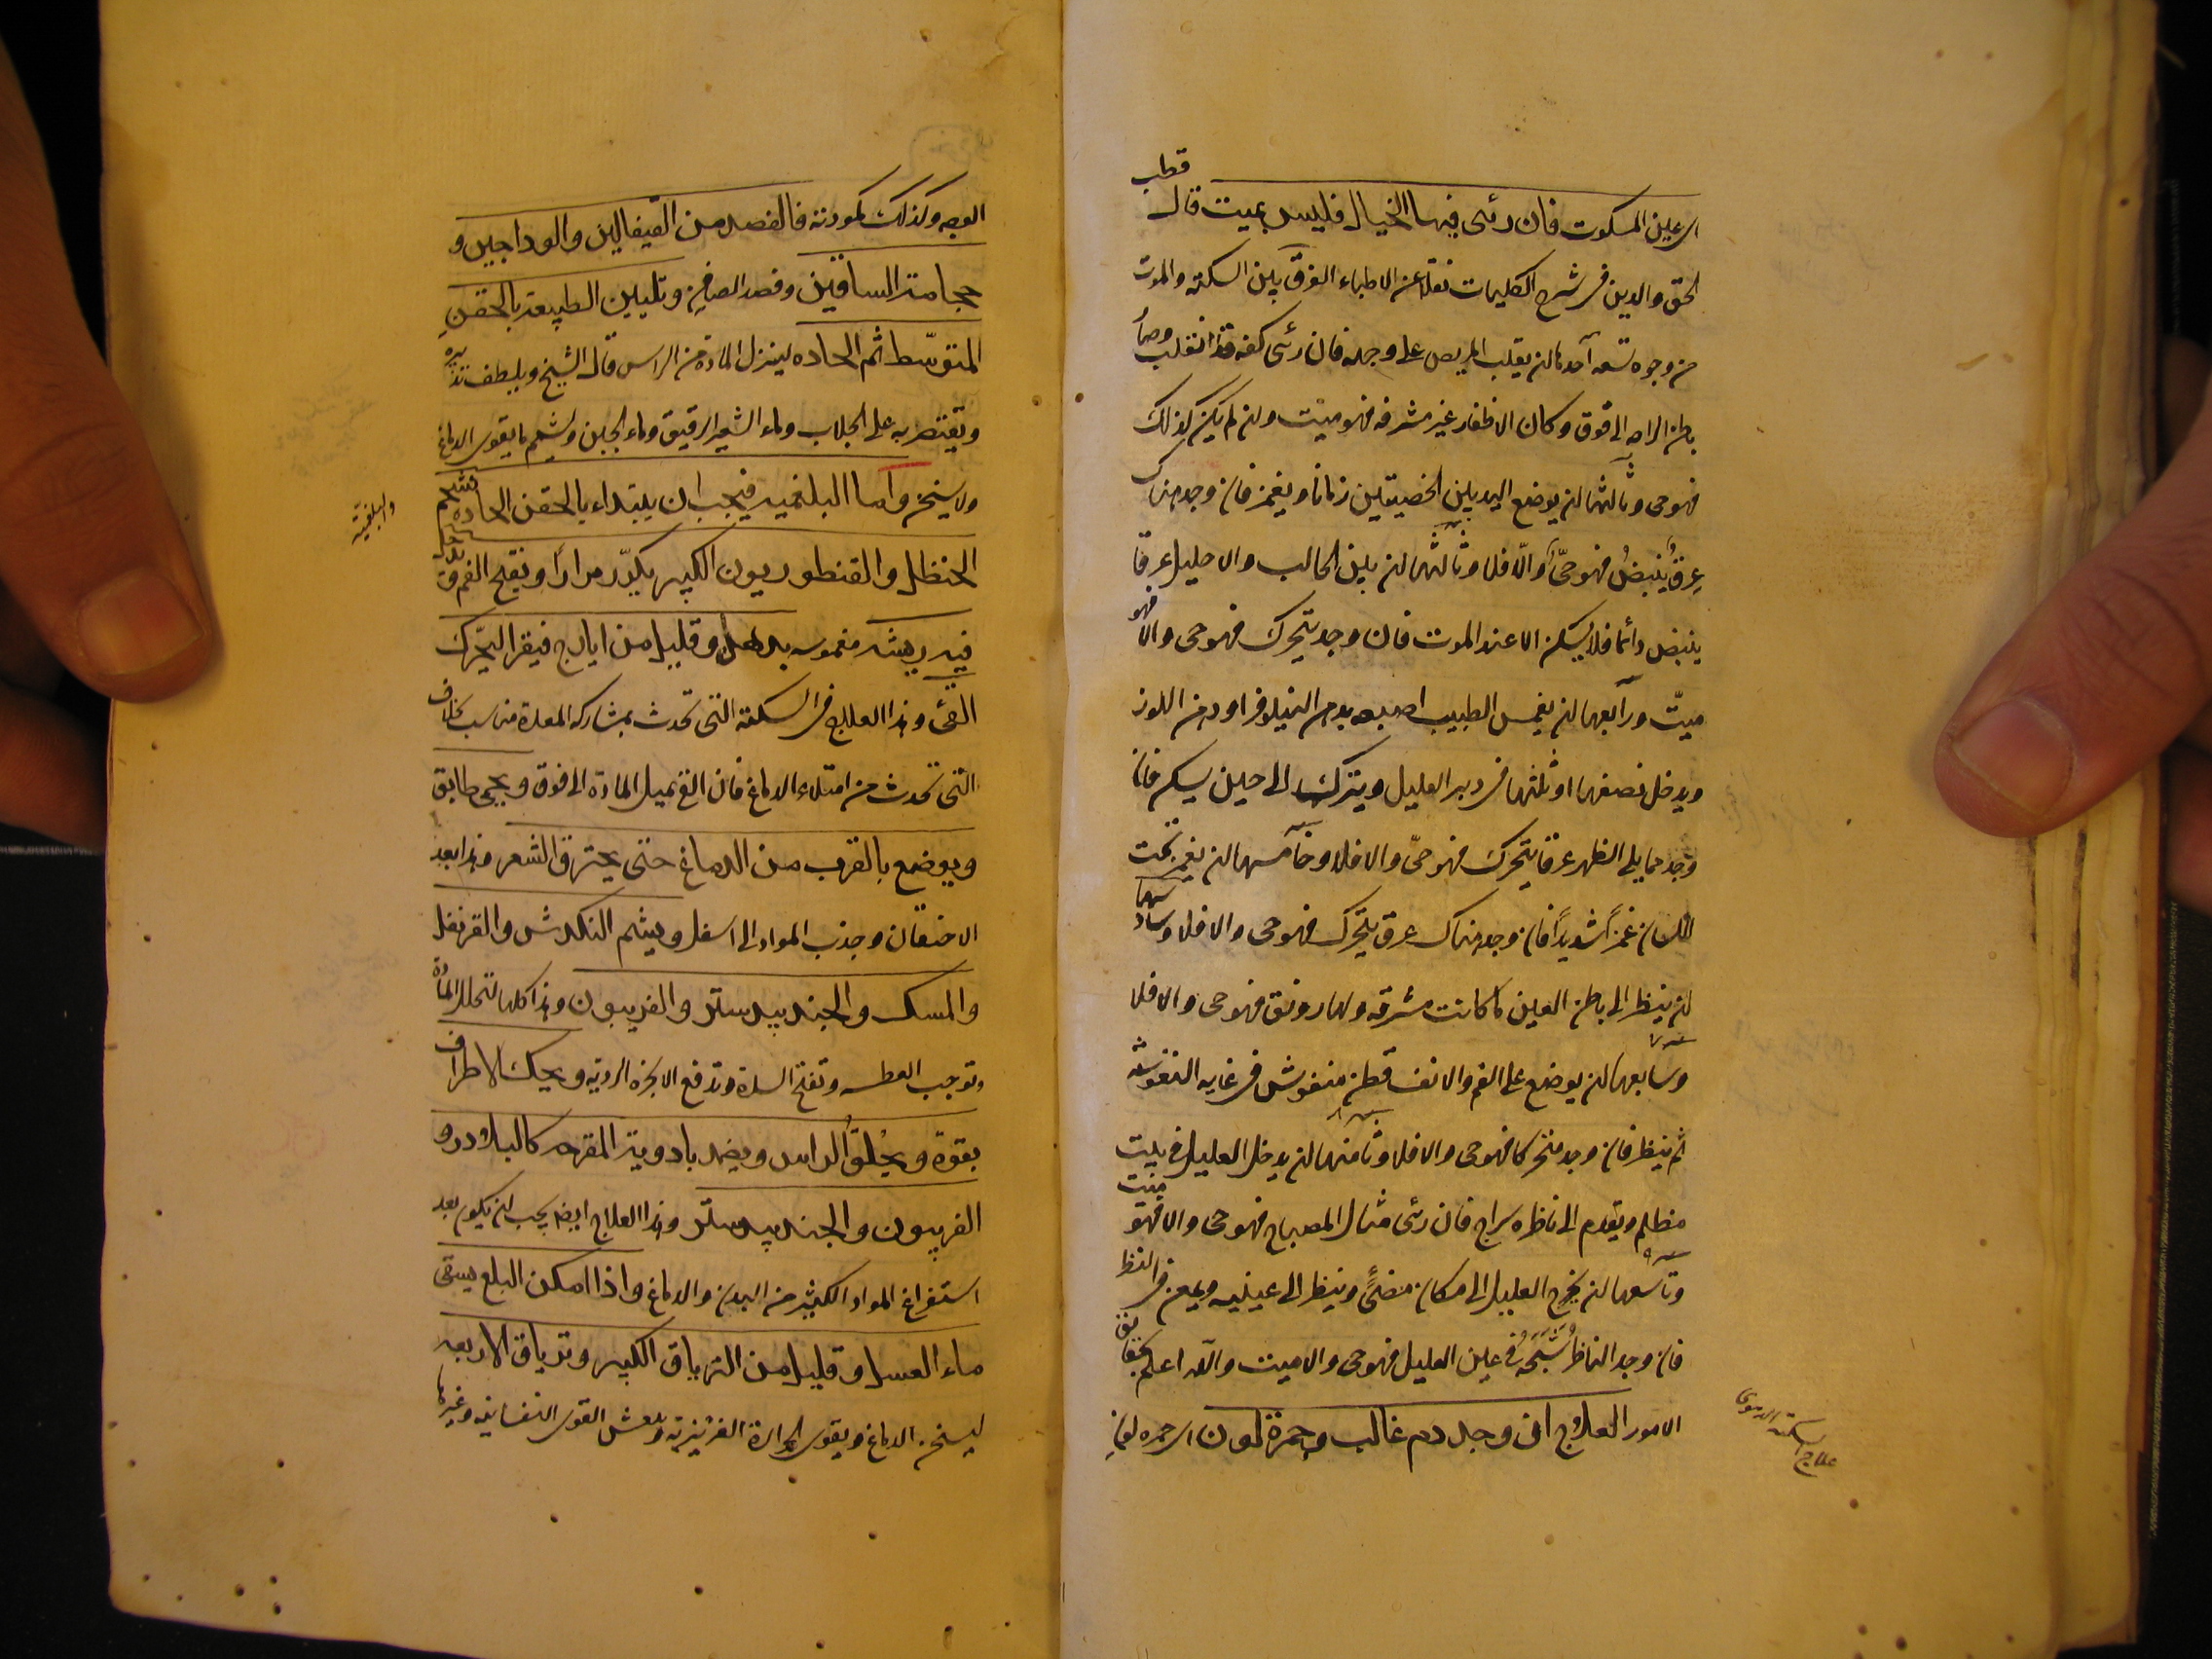 اى عين المسكوت فان رئى فيها الخيال فليس بميت قال قطب
الحق والدين فى شرح الكليات نقلا عن الاطباء الفرق بين السكتة والموت
من وجوه تسعة آحدها ان يقلب المريض على وجهه فان رئى كفه قد انقلب وصار
باطن الراحه الى فوق وكان الاظفار غير مشرفه فهو ميت وان لم يكن كذلك
فهو حى وثانيها ان يوضع اليد بين الخصيتين زمانا ويغمز فان وجد هناك
عِرقٌ ينبضُ فهو حىّ والّا فلا وثالثها ان بين الحالب والاحليل عرقا
ينبض دائما فلا يسكن الا عند الموت فان وجد يتحرك فهو حى والا فهو
ميتّ ورآبعها ان يغمس الطبيب اصبعه بدهن النيلوفر او دهن اللوز
ويدخل نصفها او ثلثها فى دبر العليل ويترك الى حين يسكن فان
وجد مما يلى الظهر عرقا يتحرك فهو حىّ والا فلا وخآمسها ان يغمز تحت
اللسان غمزًا شديدًا فان وجد هناك عرق يتحرك فهو حى والا فلا وسادسها
ان ينظر الى باطن العين فما كانت مشرقه ولها رونق فهو حى والا فلا
وسابعها ان يوضع على الفم والانف قطن منفوش فى غايه النفوشة
ثم ينظر فان وجد متحركا فهو حى والا فلا وثامنها ان يدخل العليل فى بيت
مظلم ويقدم الى ناظره سراج فان رئى مثال المصباح فهو حى والا فهو ميت
وتآسعها ان يخرج العليل الى مكان مضئ وينظر الى عينيه ويمعن فى النظر
فان وجد الناظر شَبَحَهُ فى عين العليل فهو حى والا ميت والله اعلم بحقائق
الامور العلاج ان وجد دم غالب وحمرة لون اى حمره لون
علاج السكتة الدموى
الوجه وكذلك كمودته فالفصد من القيفالين والوداجين و
حجامة الساقين وفصد الصافن وتليين الطبيعة بالحقن
المتوسّط ثم الحاده لينزل المادة من الراس قال الشيخ ويلطف تدبيره
ويقتصر به على الجلاب وماء الشعير الرقيق وماء الجبن ويشمم ما يقوى الدماغ
ولا يسخن واما البلغميه فيجب ان يبتداء بالحقن الحاده كشحم
والبلغمية
الحنظل والقنطوريون الكبير يكرّر مرارًا ويفتح الفم ويدخل
فيه ريشه مغموسه بدهن وقليل من ايارج فيقرا ليحرّك
القئ وهذا العلاج فى السكته التى تحدث بمشاركه المعدة مناسب بخلاف
التى تحدث من امتلاء الدماغ فان القئ يميل المادة الى فوق ويحمى طابق
ويوضع بالقرب من الدماغ حتى يحترق الشعر وهذا بعد
الاحتقان وجذب المواد الى اسفل ويشم الكندش والقرنفل
والمسك والجندبيدستر والفربيون وهذا كلها لتحلل المادة
وتوجب العطسه وتفتح السدة وتدفع الابخره الرديه ويحك الاطراف
بقوة ويُحلق الراس ويضمد بادوية المقرحه كالبلادر و
الفربيون والجندبيدستر وهذا العلاج ايضا يجب ان يكون بعد
استفراغ المواد الكثير من البدن والدماغ واذا امكن البلع يسقى
ماء العسل وقليل من الترياق الكبير وترياق الاربعه
ليسخن الدماغ ويقوى الحرارة الغريزية وينعش القوى النفسانيه وغيرها